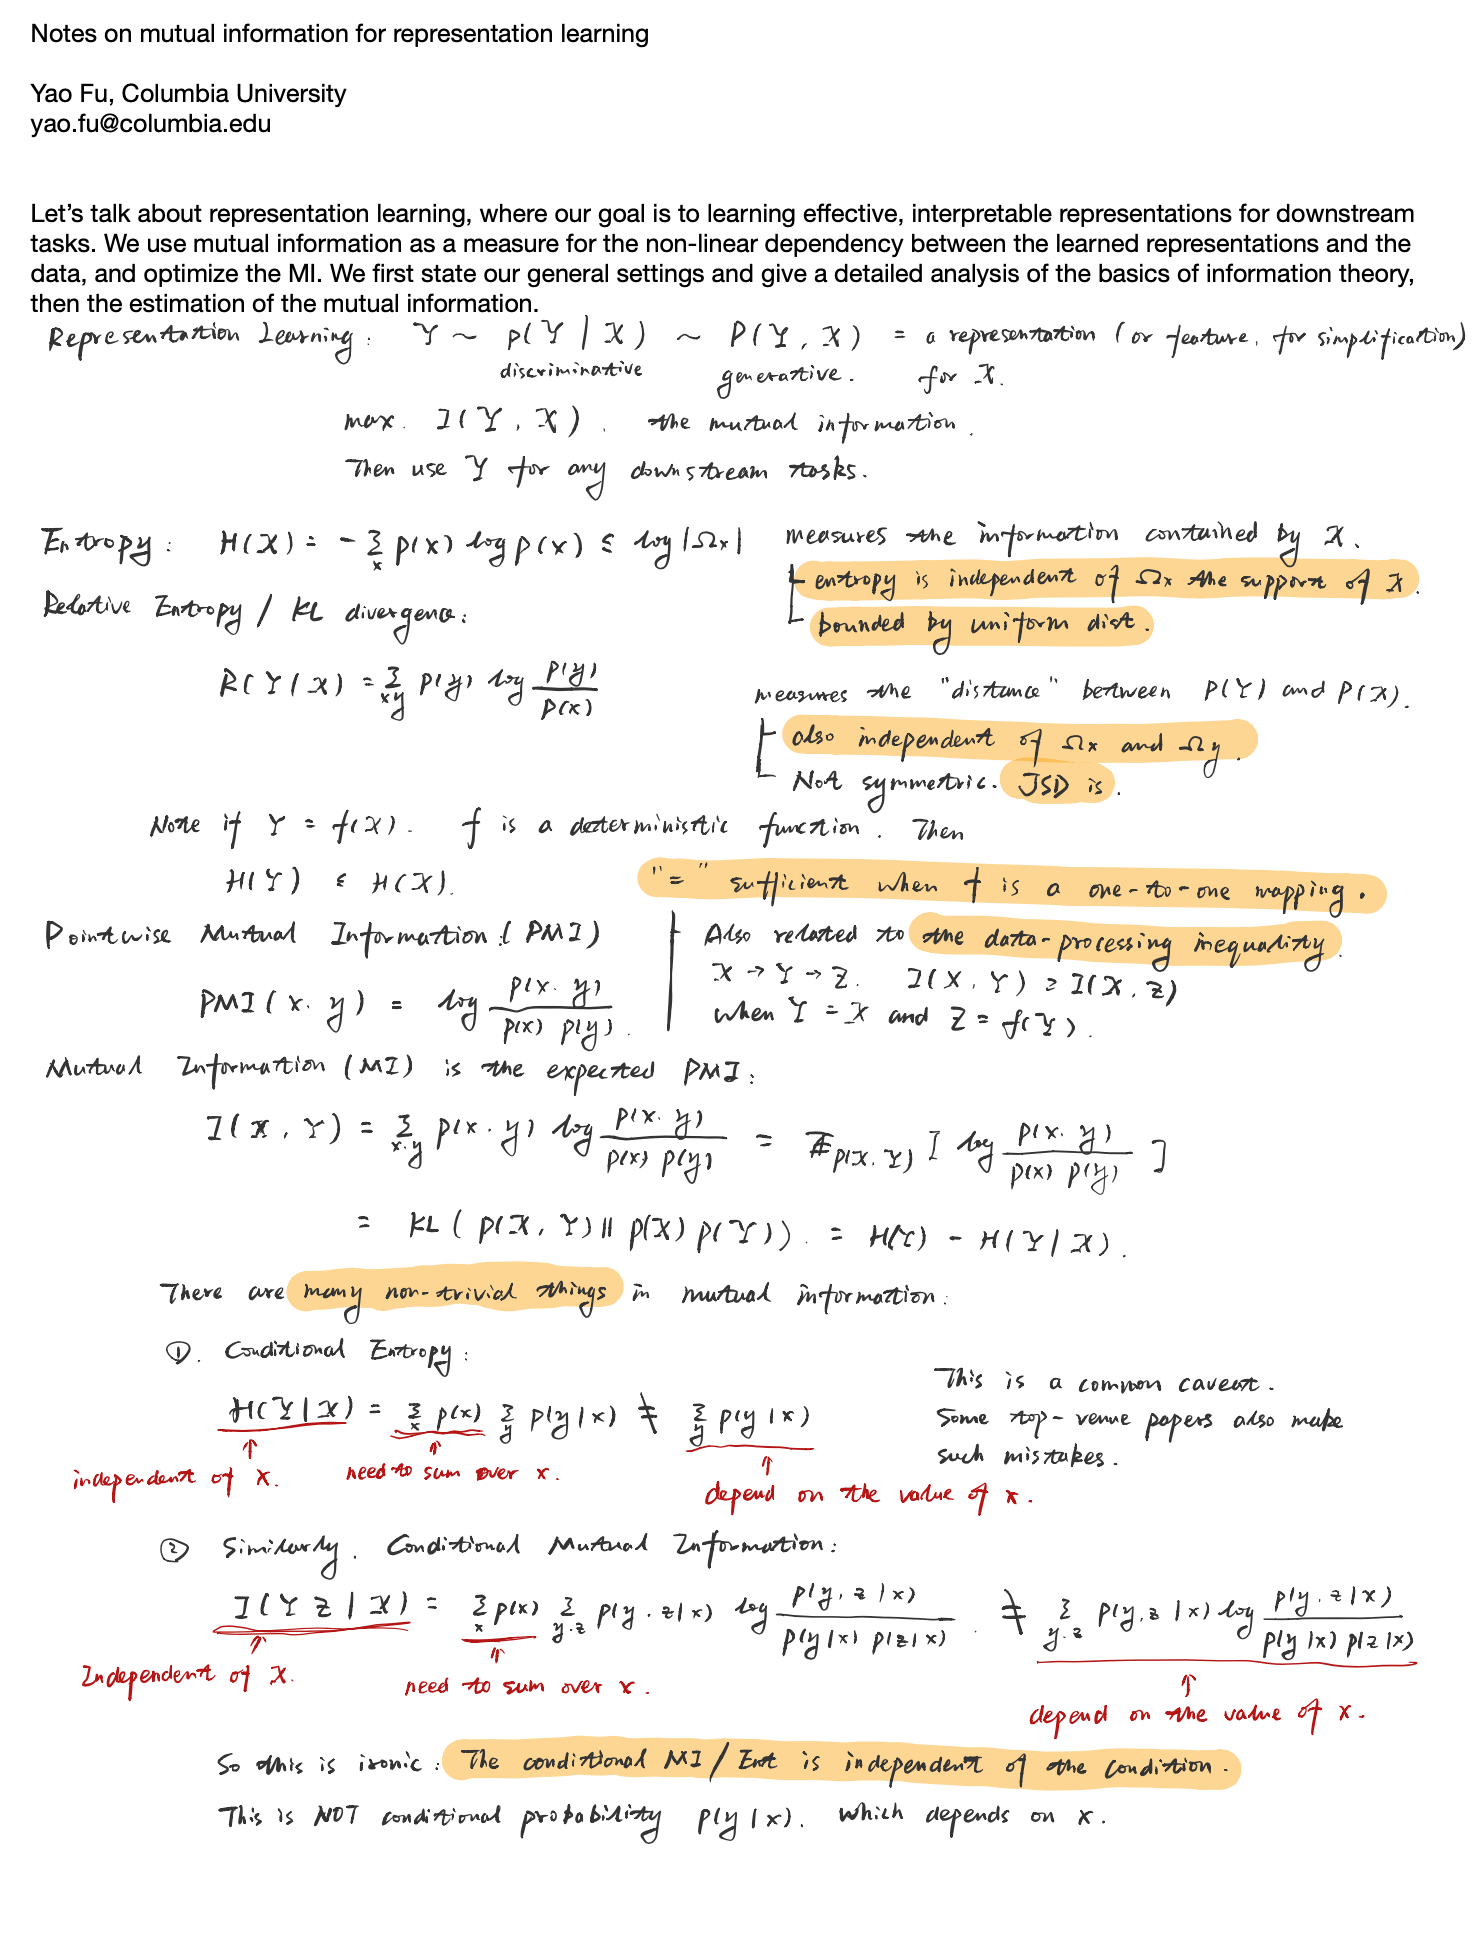 Notes on mutual information for representation learning
Yao Fu, Columbia University
yao.fu@columbia.edu
Let's talk about representation learning, where our goal is to learning effective, interpretable representations for downstream
tasks. We use mutual information as a measure for the non-linear dependency between the learned representations and the
data, and optimize the MI. We first state our general settings and give a detailed analysis of the basics of information theory,
then the estimation of the mutual information.
Representation Learning: Y ~ p(Y | X) ~ P(Y, X) = a representation (or feature, for simplification)
discriminative generative. for X.
max. I(Y, X). the mutual information.
Then use Y for any downstream tasks.
Entropy: H(X) = - Σ_x p(x) log p(x) ≤ log |Ω_x| measures the information contained by X.
entropy is independent of Ω_x the support of X.
Relative Entropy / KL divergence:
bounded by uniform dist.
R(Y|X) = Σ_xy p(y) log p(y) / p(x)
measures the "distance" between P(Y) and P(X).
also independent of Ω_x and Ω_y.
Not symmetric. JSD is.
Note if Y = f(X). f is a deterministic function. Then
H(Y) ≤ H(X). "=" sufficient when f is a one-to-one mapping.
Pointwise Mutual Information (PMI)
Also related to the data-processing inequality.
X → Y → Z. I(X, Y) ≥ I(X, Z)
PMI(x. y) = log p(x. y) / p(x) p(y).
when Y = X and Z = f(Y).
Mutual Information (MI) is the expected PMI:
I(X, Y) = Σ_x.y p(x. y) log p(x. y) / p(x) p(y) = E_p(X. Y) [ log p(x. y) / p(x) p(y) ]
= KL ( p(X, Y) || p(X) p(Y)). = H(Y) - H(Y | X).
There are many non-trivial things in mutual information:
①. Conditional Entropy:
H(Y|X) = Σ_x p(x) Σ_y p(y|x) ≠ Σ_y p(y|x)
This is a common caveat.
Some top-venue papers also make
such mistakes.
independent of X. need to sum over x.
depend on the value of x.
② Similarly. Conditional Mutual Information:
I(Y Z | X) = Σ_x p(x) Σ_y.z p(y. z|x) log p(y, z | x) / p(y|x) p(z|x). ≠ Σ_y.z p(y, z | x) log p(y. z | x) / p(y|x) p(z|x)
Independent of X. need to sum over x.
depend on the value of x.
So this is ironic: The conditional MI / Ent is independent of the condition.
This is NOT conditional probability p(y | x). which depends on x.